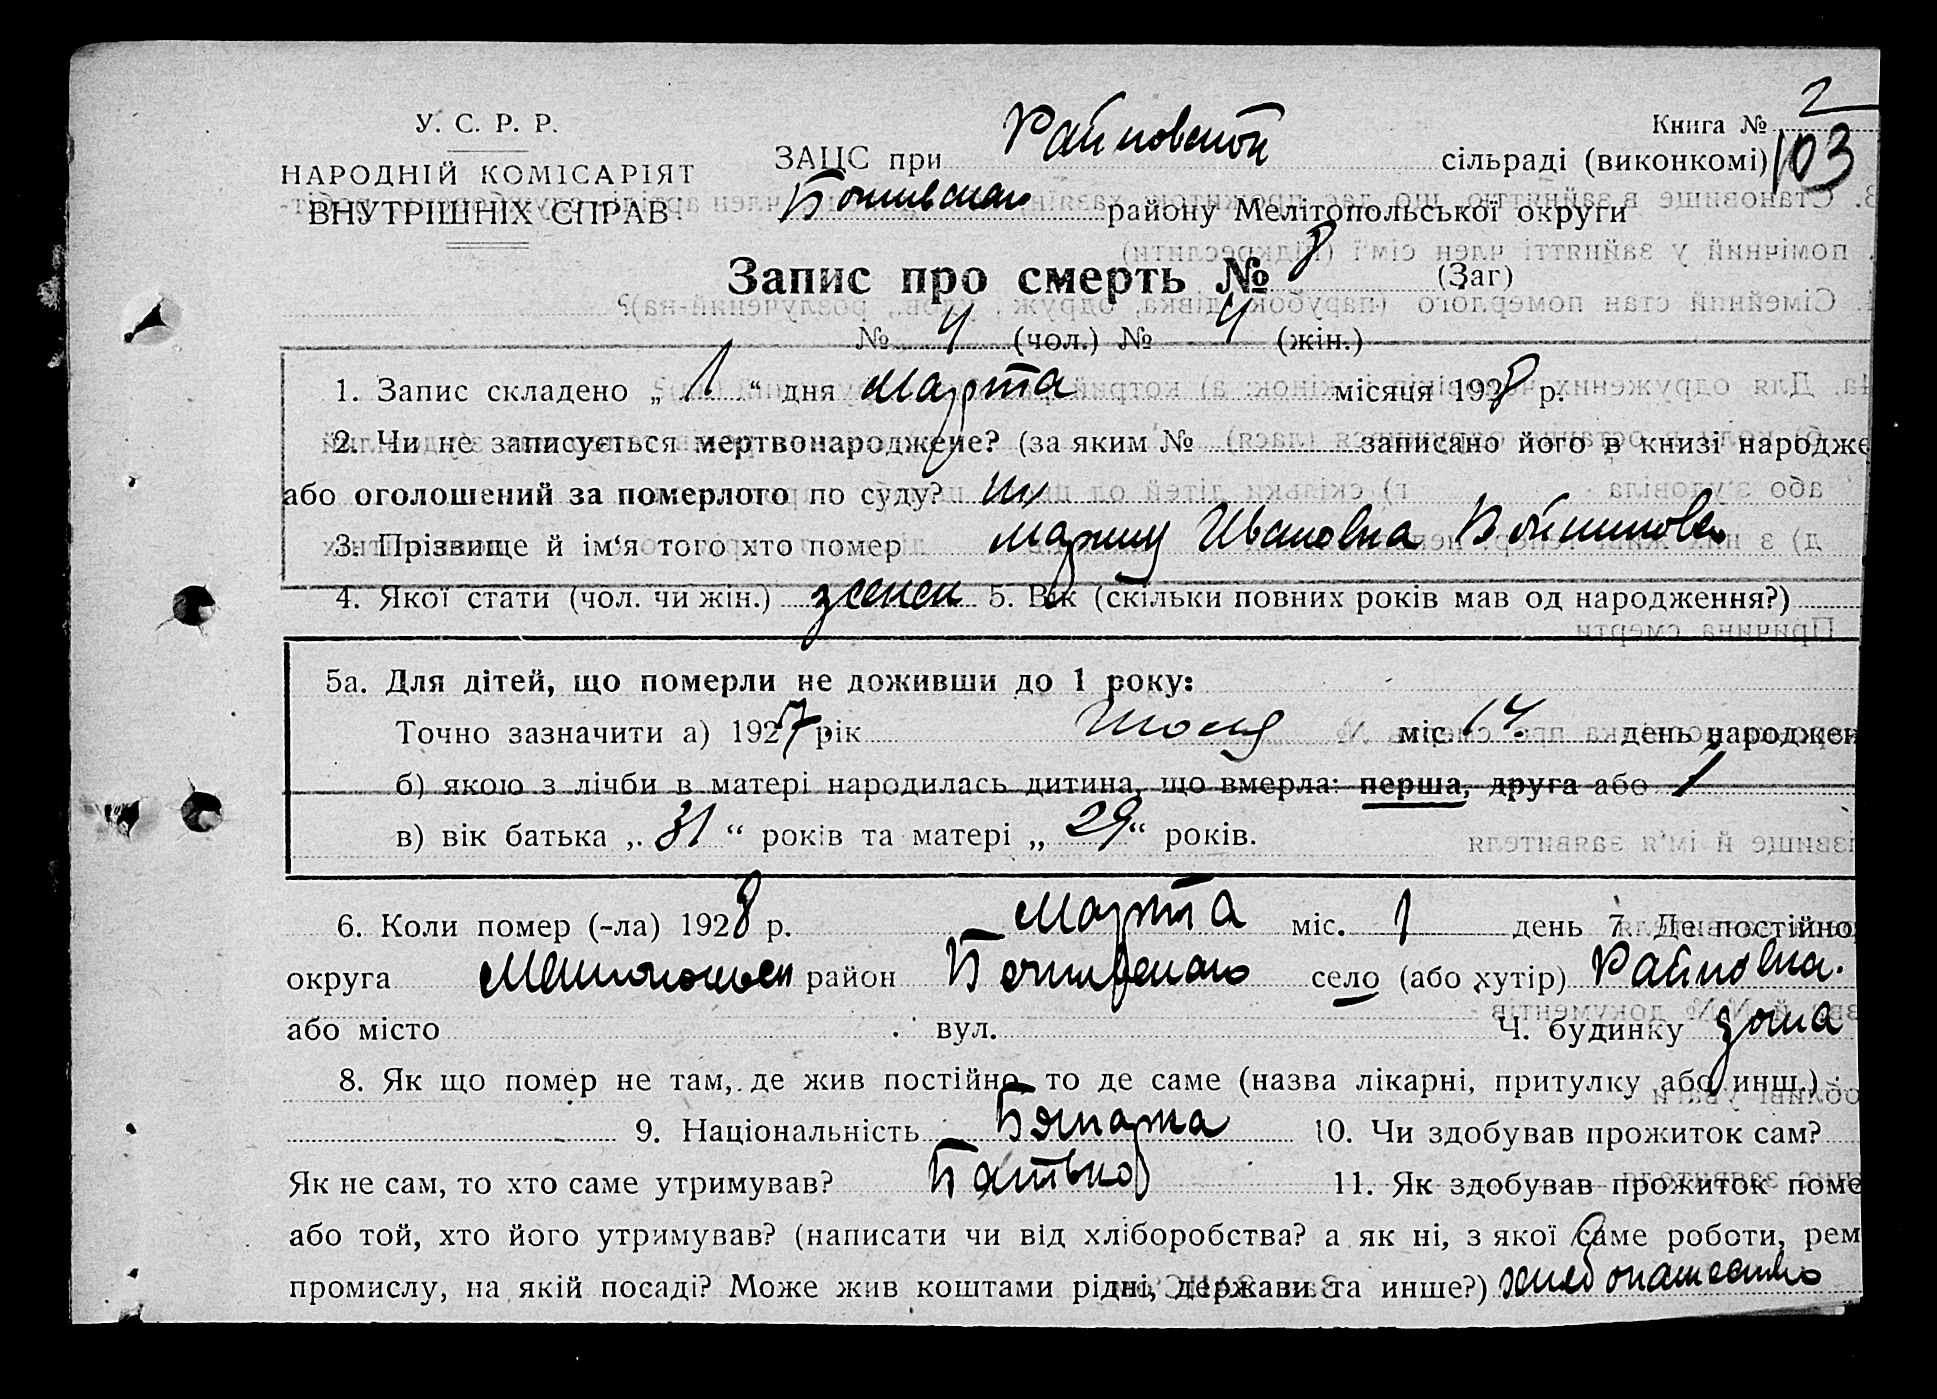 Книга № 2
У. С. Р. Р.
НАРОДНІЙ КОМІСАРІЯТ
ВНУТРІШНІХ СПРАВ
ЗАЦС при Райновской сільраді (виконкомі) 103
району Мелітопольської округи
Запис про смерть № 8 (Заг)
№ 4 (чол.) № 4 (жін.)
1. Запис складено „ 1 “ дня Марта місяця 1928 р.
2. Чи не записується мертвонароджене? (за яким № записано його в книзі народже
або оголошений за померлого по суду?
3. Прізвище й ім‘я того хто помер Ивановна
4. Якої стати (чол. чи жін.) женск 5. Вік (скільки повних років мав од народження?)
5а. Для дітей, що померли не доживши до 1 року:
Точно зазначити а) 1927 рік міс. 14 день народжен
б) якою з лічби в матері народилась дитина, що вмерла: перша, друга або 1
в) вік батька „ 31 “ років та матері „ 29 “ років.
6. Коли помер (-ла) 1928 р. Марта міс. 1 день 7. Де постійно
округа район село (або хутір) Райновка.
або місто вул. Ч. будинку дома
8. Як що помер не там, де жив постійно, то де саме (назва лікарні, притулку або инш.)
9. Національність 10. Чи здобував прожиток сам?
Як не сам, то хто саме утримував? Батько 11. Як здобував прожиток поме
або той, хто його утримував? (написати чи від хліборобства? а як ні, з якої саме роботи, рем
промислу, на якій посаді? Може жив коштами рідні, держави та инше?) хлебопашество